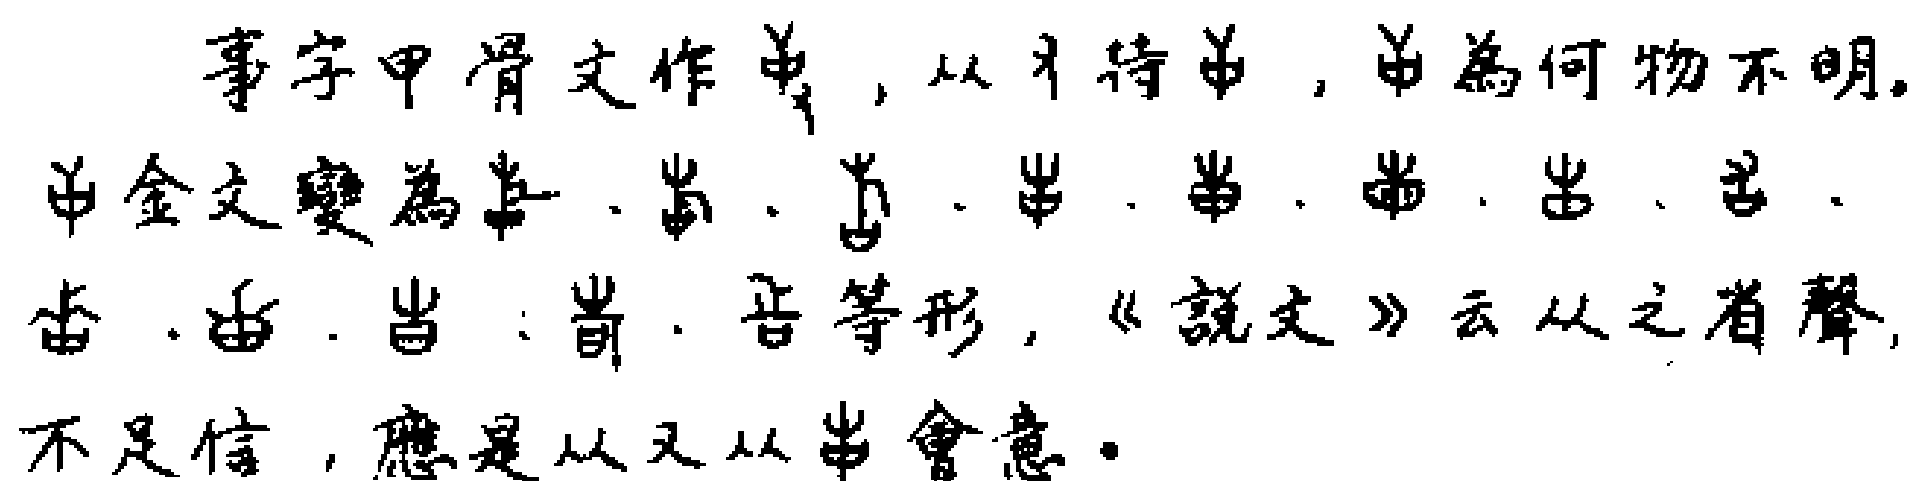 事字甲骨文作，从又持，為何物不明。
金文變為、、、、、、、、
、、、、等形，《説文》云从之省聲，
不足信，應是从又从會意。